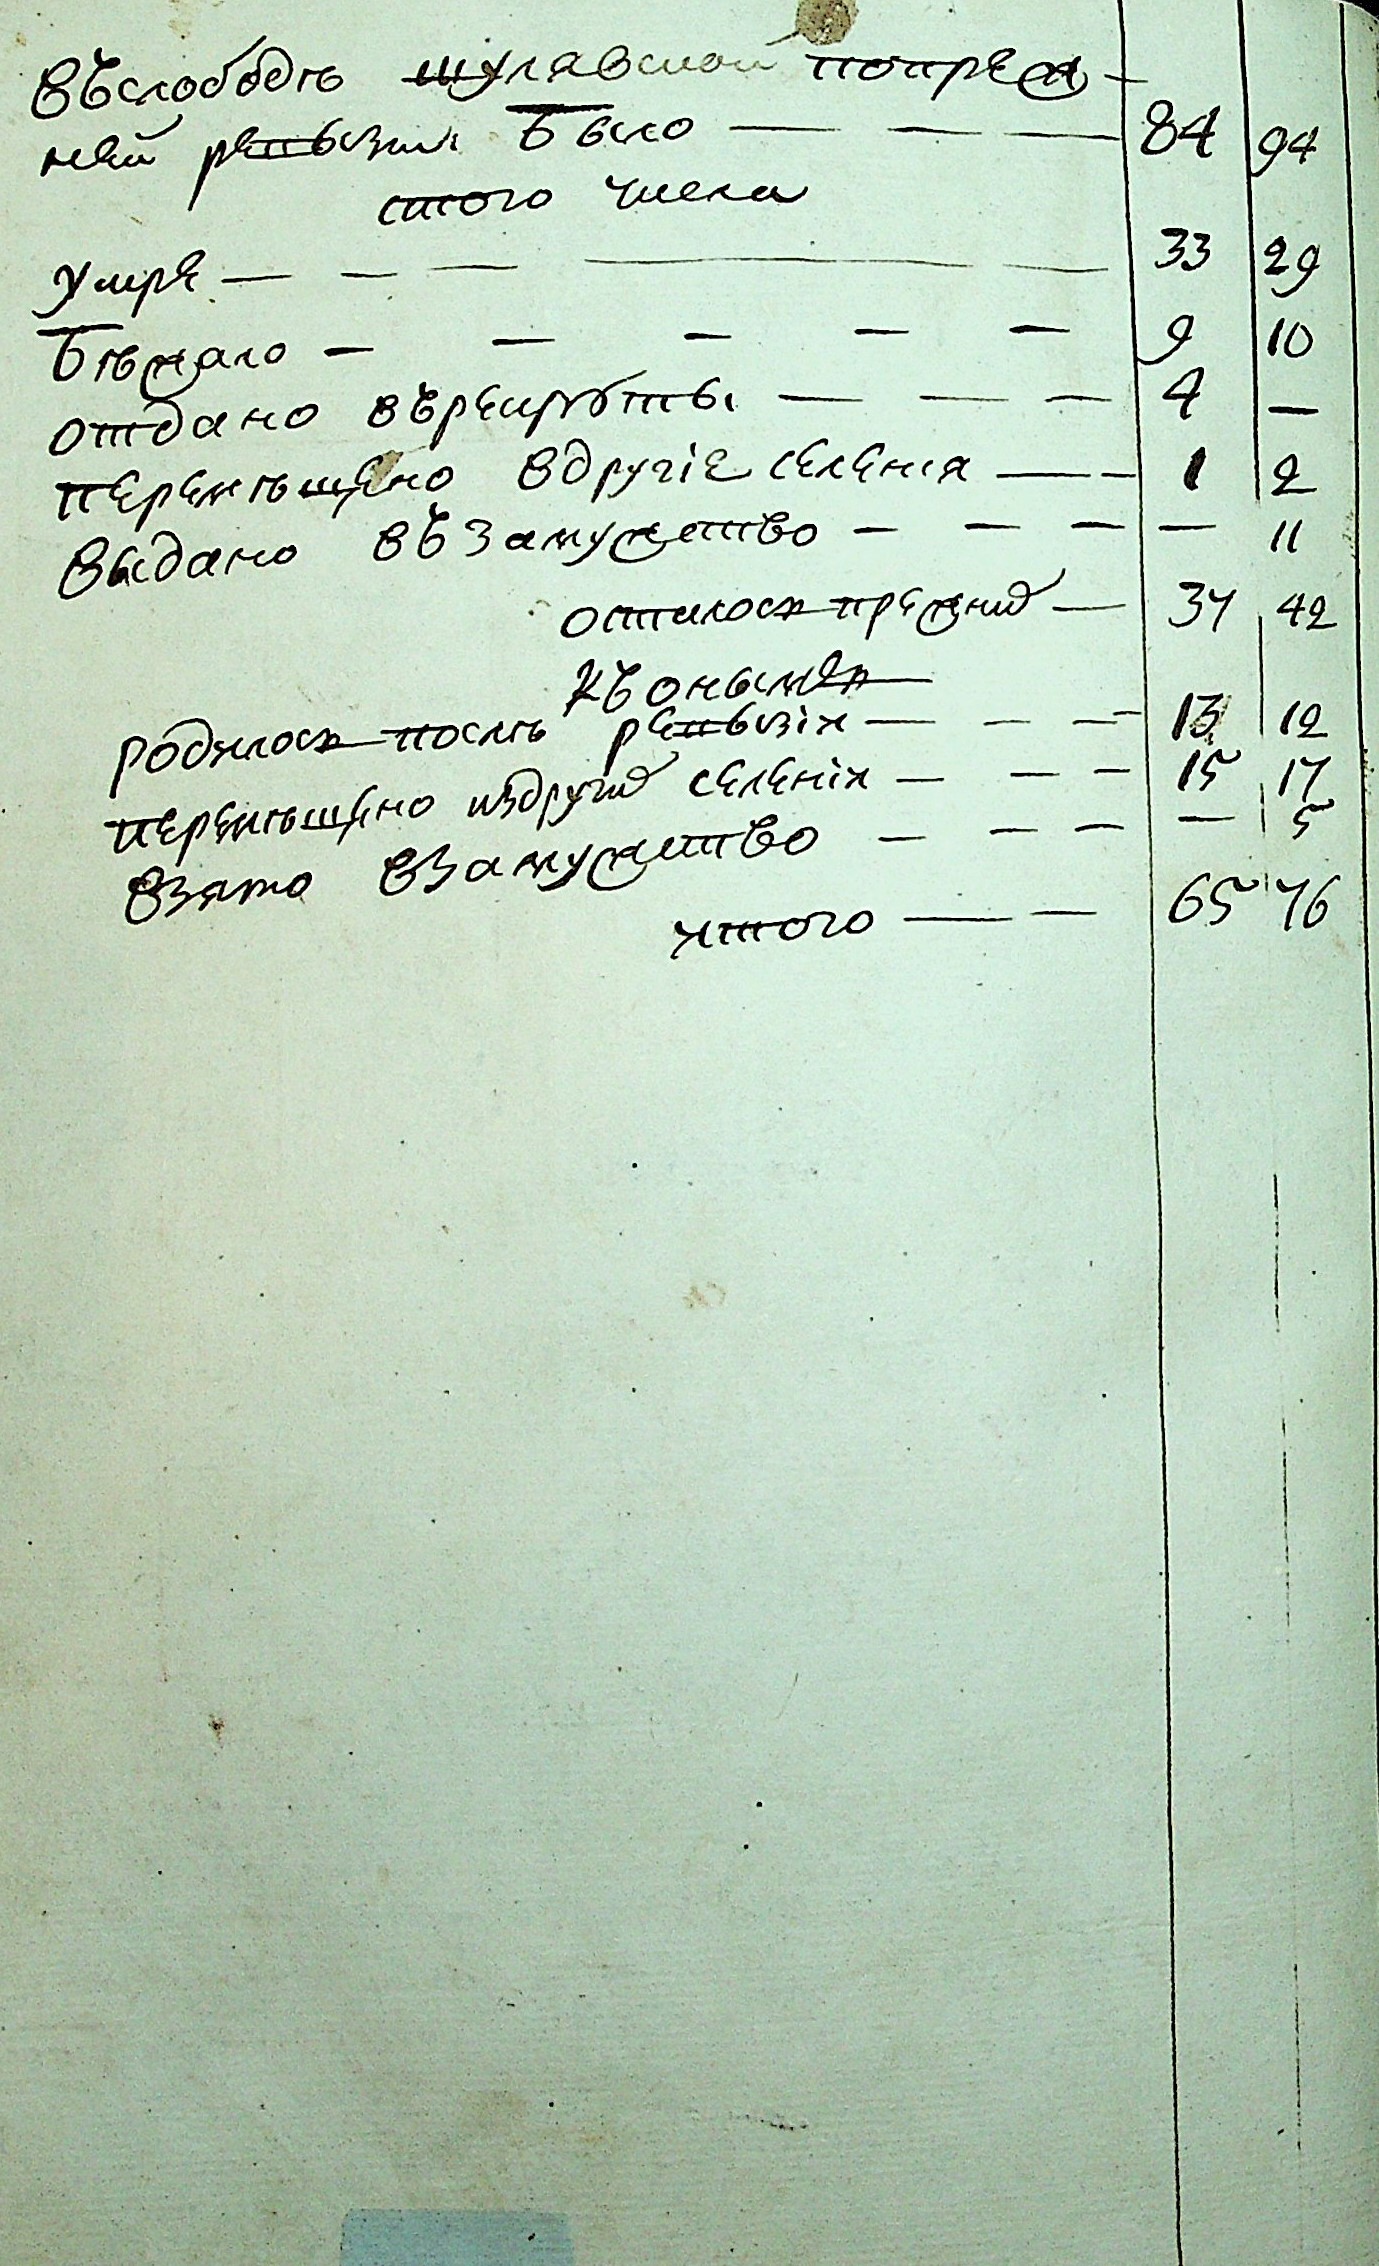 въслободѣ шулявской попреж-
ней ревизиі было — — — 84 94
стого числа
умре — — — — 33 29
бѣжало — — — — — 9 10
отдано върекруты — — — 4 —
перемѣщено вдругіе селения — — 1 2
выдано въ замужетво — — — — 11
осталося прежних — 37 42
къонымъ
родилося послѣ ревизіи — — — 13 12
перемѣщено издругих селеніи — — — 15 17
взято взамужетво — — — — 5
итого — — 65 76